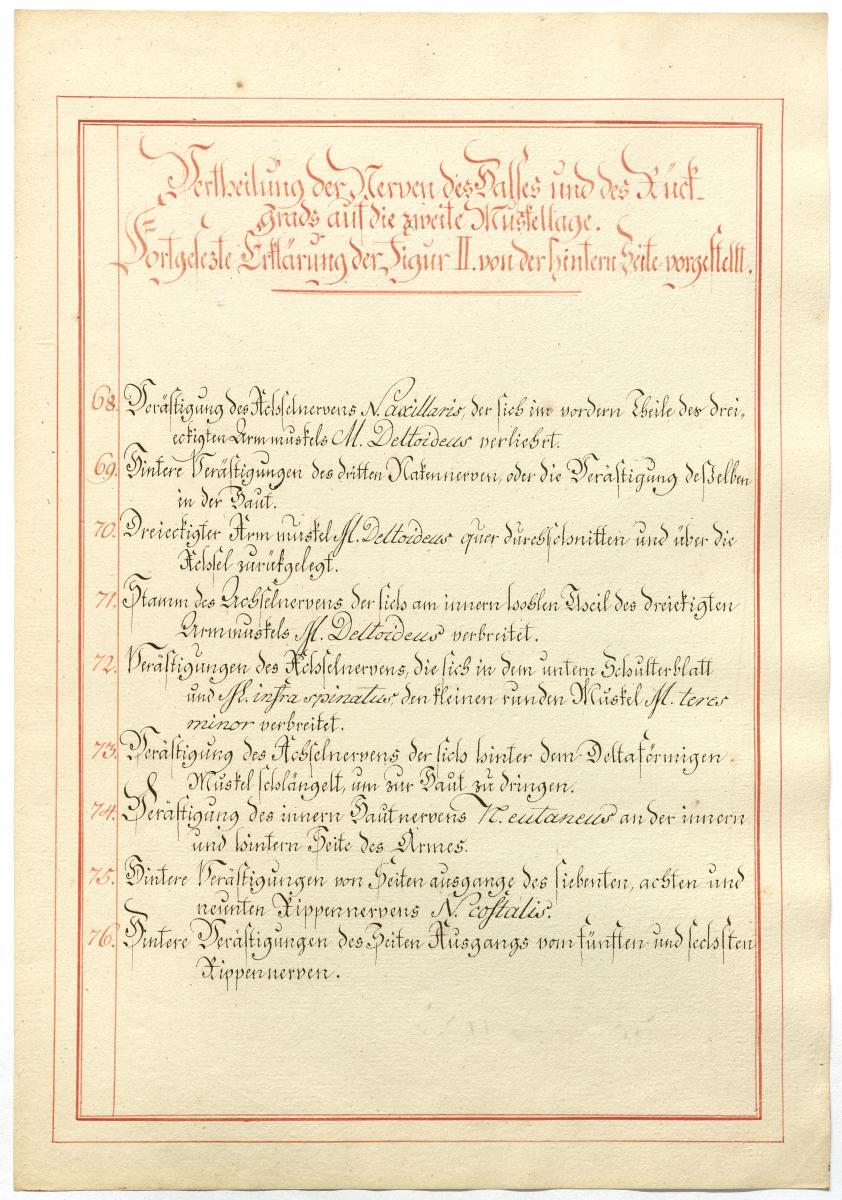 Vertheilung der Nerven des Halses und des Rück-
grads auf die zweite Muskellage.
Fortgesezte Erklärung der Figur II. von der hintern Seite vorgestellt.
68. Verästigung des Achselnervens N. axillaris, der sich im vordern Theile des drei-
eckigten Armmuskels M. Deltoideus verliehrt.
69. Hintere Verästigungen des dritten Nakennerven, oder die Verästigung desselben
in der Haut.
70. Dreieckigter Arm muskel M. Deltoideus quer durchschnitten und über die
Achsel zurükgelegt.
71. Stamm des Achselnervens der sich am innern hohlen Theil des dreiekigten
Armmuskels M. Deltoideus verbreitet.
72. Verästigungen des Achselnervens, die sich in dem untern Schulterblatt
und M. infra spinatus, den kleinen runden Muskel M. teres
minor verbreitet.
73. Verästigung des Achselnervens der sich hinter dem Deltaförmigen
Muskel schlängelt, um zur Haut zu dringen.
74. Verästigung des innern Hautnervens N. cutaneus an der innern
und hintern Seite des Armes.
75. Hintere Verästigungen von Seiten ausgange des siebenten, achten und
neunten Rippennervens N. costalis.
76. Hintere Verästigungen des Seiten Ausgangs vom fünften und sechsten
Rippennerven.